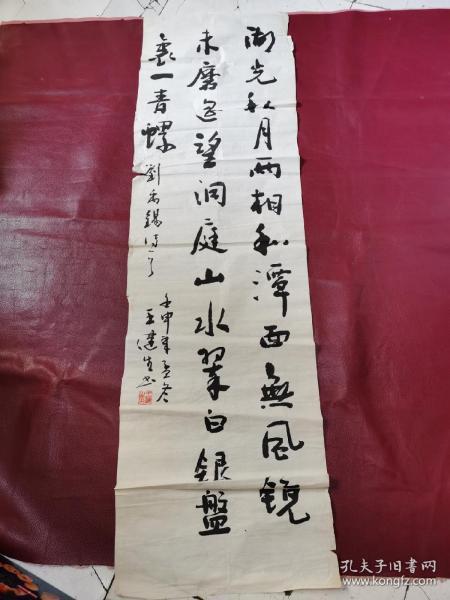 湖光秋月两相和潭面无风镜
未磨遥望洞庭山水翠白银盘
裏一青螺 劉禹錫詩一首
壬申年孟冬
王健生书
孔夫子旧书网
www.kongfz.com